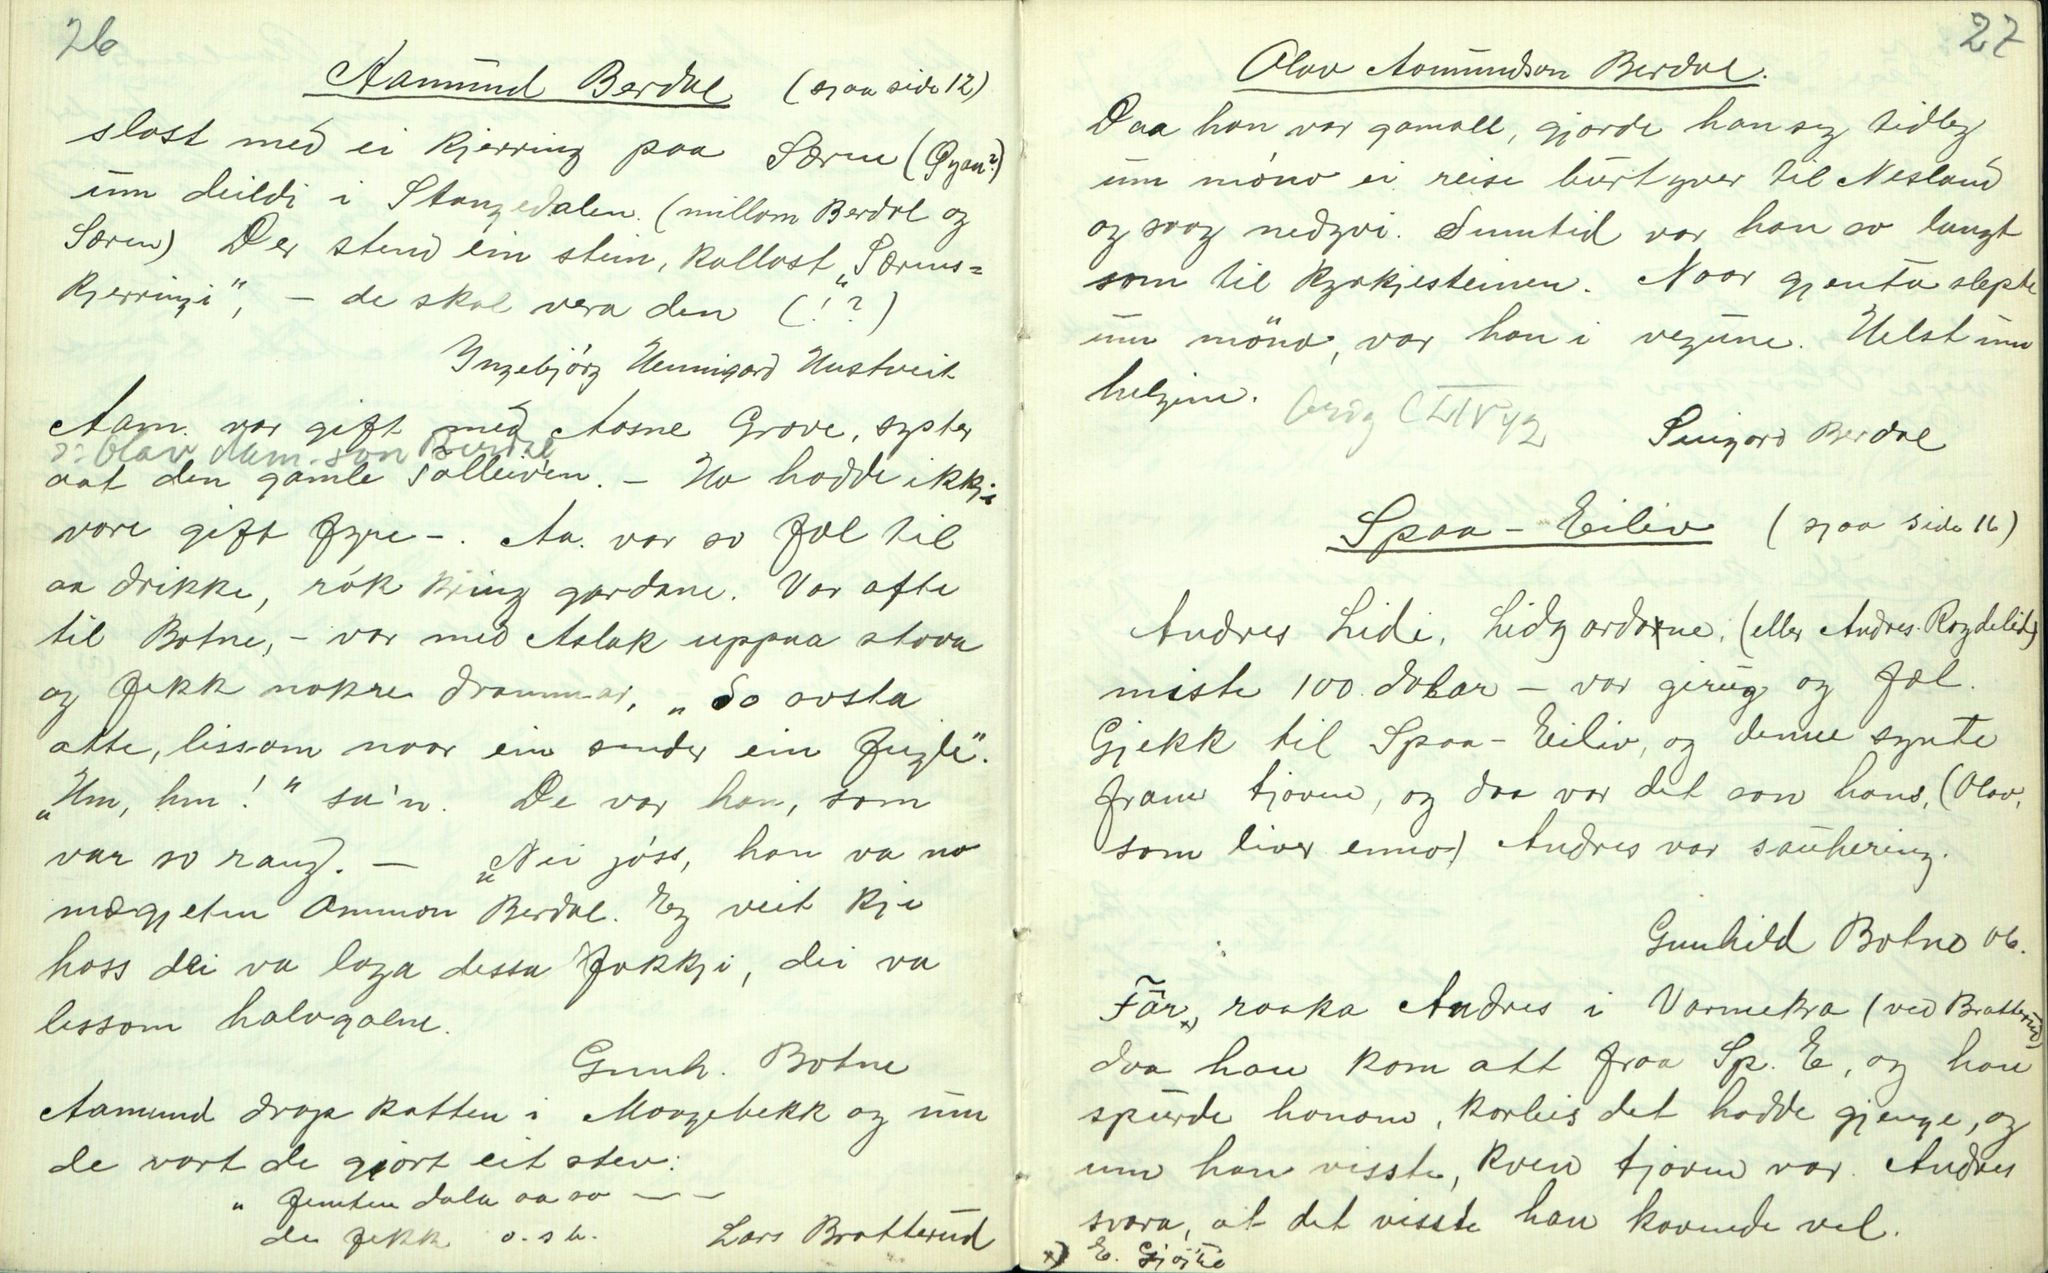 26
Aamund Berdal (sjaa side 12)
slost med ei kjerring paa Særen (Øyan?)
um deildi i Stangedalen. (millom Berdal og
Særen) Der stend ein stein, kallast „Særens-
kjerringi", – de skal vera den (!?)
Ingebjörg Hennigard Hustveit
Aam. var gift med Aasne Grove, syster
ɔ: Olav Aam.son Berdal
aat den gamle Solleiven. – Ho hadde ikkje
vore gift fyre –. Aa. var so fæl til
aa drikke, rók kring gardane. Var ofte
til Botne, – var med Aslak uppaa stova
og fekk nokre drammar, „So
atte, lissom naar ein sender ein fugle".
„Hm, hm!" sa'n. De var han, som
var so raug. – „Nei jóss, han va no
mægjeten Ommon Berdal. Eg veit kje
hoss dei va laga dessa fokkji, dei va
lessom halvgalne.
Gunh. Botne
Aamund drap katten i Maagebekk og um
de vart de gjort eit stev:
„ Femten dala aa so – –
de fekk o. s. b. Lars Bratterud
27
Olav Aamundson Berdal.
Daa han var gamall, gjorde han seg tidleg
um móno ei reise burtyver til Nesland
og saag nedyvi. Sumtid var han so langt
som til Kyrkjesteinen. Naar gjenta slepte
um mönó, var han i vegune. Helst um
helgine.
Orig CLIV 42
Svigard Berdal
Spaa-Eiliv (sjaa side 16)
Andres Lidi, Lidgardane, (eller Andres Roydelid)
miste 100 dalar – var girug og fæl.
Gjekk til Spaa-Eiliv, og denne synte
fram tjoven, og daa var det son hans, (Olav,
som liver enno) Andres var sauhering.
Gunhild Botne 06.
Får x) raaka Andres i Varmekra (ved Bratterud)
daa han kom att fraa Sp. E, og han
spurde honom, korleis det hadde gjenge, og
um han visste, kven tjoven var. Andres
svara, at det visste han kavende vel.
x) E. Gjøitil